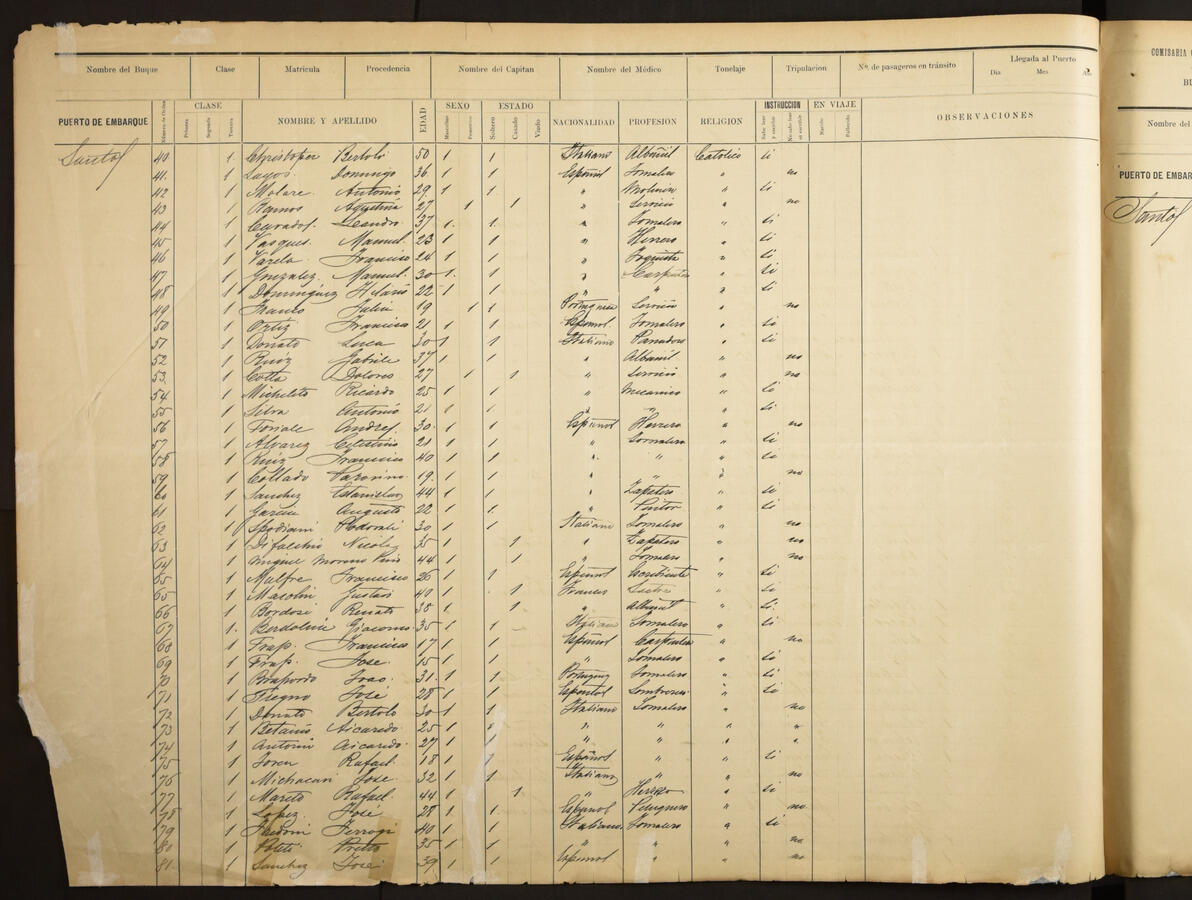 Nombre del Buque Clase Matrícula Procedencia Nombre del Capitan Nombre del Médico Tonelaje Tripulacion No. de pasageros en tránsito Llegada al Puerto
Dia Mes Año
PUERTO DE EMBARQUE Número de Orden CLASE NOMBRE Y APELLIDO EDAD SEXO ESTADO NACIONALIDAD PROFESION RELIGION INSTRUCCION EN VIAJE OBSERVACIONES
Primera Segunda Tercera Masculino Femenino Soltero Casado Viudo Sabe leer y escribir No sabe leer ni escribir Nacido Fallecido
Santos 40 1 Christofer Bertoli 50 1 1 Italiano Albañil Catolico si
41 1 Lagos Domingo 36 1 1 Español Jornalero " no
42 1 Molare Antonio 29 1 1 " " si
43 1 Ramos Agustina 27 1 1 " Servicio " no
44 1 Leandro 37 1 1 " Jornalero " si
45 1 Vasques Manuel 23 1 1 " Herrero " si
46 1 Varela Francisco 24 1 1 " " si
47 1 Gonzalez Manuel 30 1 1 " Carpintero " si
48 1 Dominguez Hilario 22 1 1 " " " si
49 1 Julia 19 1 1 Portuguesa Servicio " no
50 1 Ortiz Francisco 21 1 1 Español Jornalero " si
51 1 Donato Luca 30 1 1 Italiano Panadero " si
52 1 Ruiz 37 1 1 " Albañil " no
53 1 Cotta Dolores 27 1 1 " Servicio " no
54 1 Micheleto Ricardo 25 1 1 " Mecanico " si
55 1 Silva Antonio 21 1 1 " " " si
56 1 Andres 30 1 1 Español Herrero " no
57 1 Alvarez Celestino 21 1 1 " Jornalero " si
58 1 Ruiz Francisco 40 1 1 " " " si
59 1 Collado 19 1 1 " " " no
60 1 Sanchez Estanislao 44 1 1 " Zapatero " si
61 1 Garcia Augusto 22 1 1 " Pintor " si
62 1 30 1 1 Italiano Jornalero " no
63 1 Nicolas 35 1 1 " Zapatero " no
64 1 Miguel Moreno 44 1 1 " Jornalero " no
65 1 Malfre Francisco 26 1 1 Español Escribiente " si
65 1 Gustavo 40 1 1 Frances " si
66 1 Bordosi Renato 38 1 1 " Albañil " si
67 1 Giacomo 35 1 1 Italiano Jornalero " si
68 1 Francisco 17 1 1 Español Carpintero " no
69 1 Jose 15 1 1 " Jornalero " si
70 1 Joao 31 1 1 Portugues Jornalero " si
71 1 José 28 1 1 Español " si
72 1 Donato Bertolo 30 1 1 Italiano Jornalero " no
73 1 Aicardo 25 1 " " " "
74 1 Antonio Aicardo 27 1 1 " " " "
75 1 Rafael 18 1 1 Español " si
76 1 Jose 32 1 1 Italiano " " no
77 1 Rafael 44 1 1 " Herrero " si
78 1 Lopez José 28 1 1 Español " no
79 1 40 1 1 Italiano Jornalero " si
80 1 35 1 1 " " " no
81 1 Sanchez José 39 1 1 Español " " no
COMISARIA
BU
Nombre del
PUERTO DE EMBAR
Santos